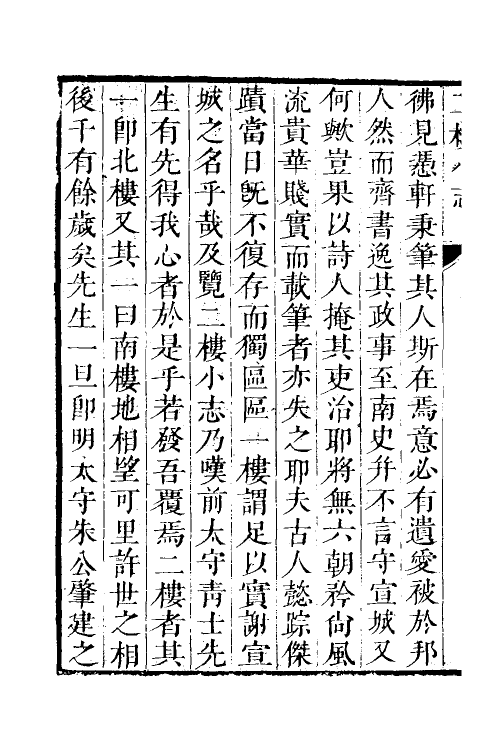 二樓小志
彿見憑軒秉筆其人斯在焉意必有遺愛被於邦
人然而齊書逸其政事至南史幷不言守宣城又
何歟豈果以詩人掩其吏治耶將無六朝矜尙風
流貴華賤實而載筆者亦失之耶夫古人懿踪傑
蹟當日旣不復存而獨區區一樓謂足以實謝宣
城之名乎哉及覽二樓小志乃嘆前太守靑士先
生有先得我心者於是乎若發吾覆焉二樓者其
一卽北樓又其一曰南樓地相望可里許世之相
後千有餘歲矣先生一旦卽明太守朱公肇建之